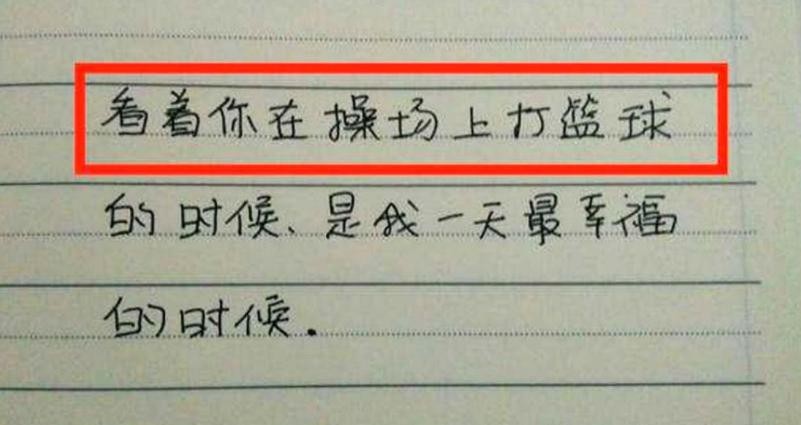 看着你在操场上打篮球
的时候、是我一天最幸福
的时候.